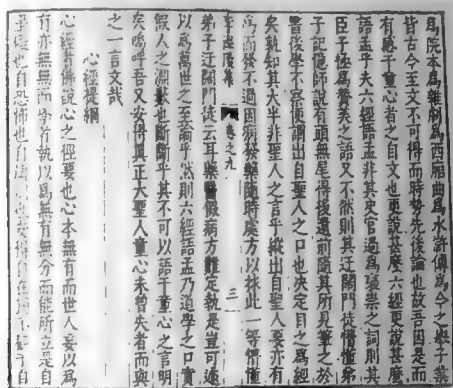 為院本為雜劇為西廂曲為水滸傳為今之舉子業
皆古今至文不可得而時勢先後論也故吾因是而
有感于童心者之自文也更說甚麼六經更說甚麼
語孟乎夫六經語孟非其史官過為褒崇之詞則其
臣子極為贊美之語又不然則其迂闊門徒懵懂弟
子記憶師說有頭無尾得後遺前隨其所見筆之於
書後學不察便謂出自聖人之口也決定目之為經
矣孰知其大半非聖人之言乎縱出自聖人要亦有
為而發不過因病發藥隨時處方以救此一等懵懂
卷之九 三
弟子迂闊門徒云耳藥醫假病方難定執是豈可遽
以為萬世之至論乎然則六經語孟乃道學之口實
假人之淵藪也斷斷乎其不可以語于童心之言明
矣嗚呼吾又安得真正大聖人童心未曾失者而與
之一言文哉
心經提綱
心經者佛說心之徑要也心本無有而世人妄以為
有亦無無而學者執以為無有無分而能所立是自
礙也自恐怖也自